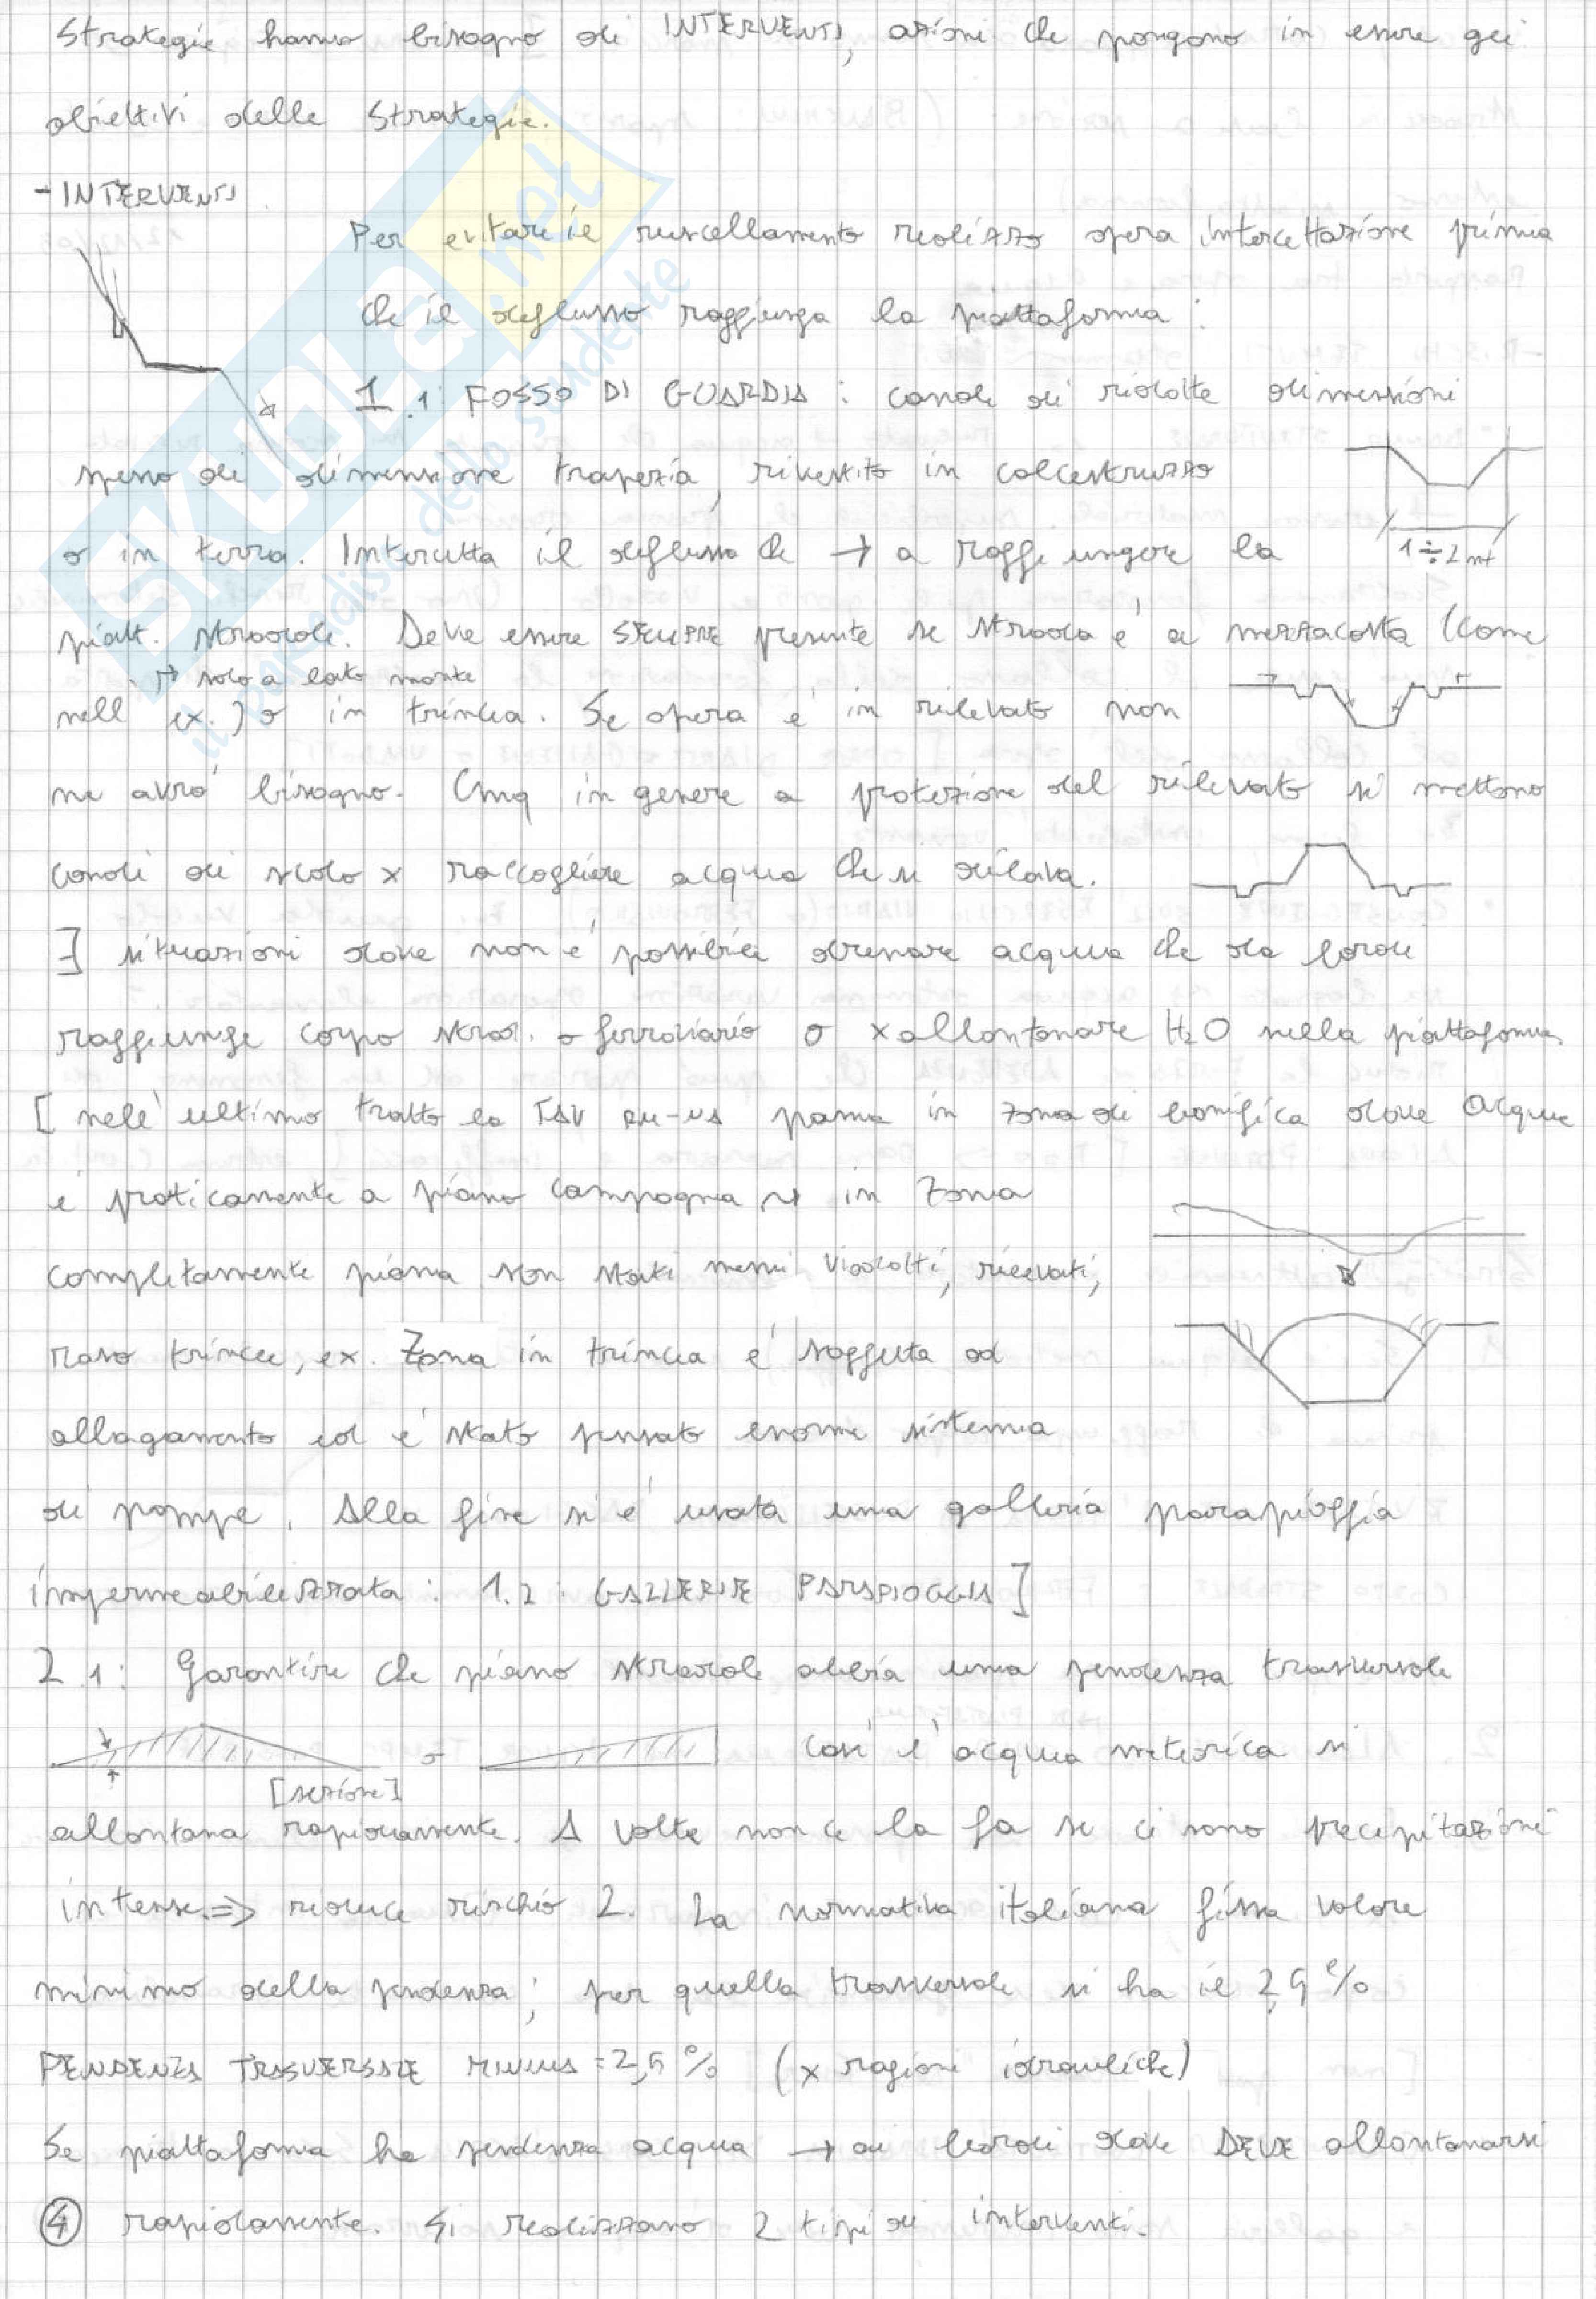 Strategie hanno bisogno di INTERVENTI, azioni che pongono in essere gli
obiettivi delle strategie.
- INTERVENTI
Per evitare il ruscellamento realizzo opera intercettazione prima
che il deflusso raggiunga la piattaforma :
1.1 : FOSSO DI GUARDIA : canale di ridotte dimensioni
spesso di dimensione trapezia, rivestito in calcestruzzo
o in terra. Intercetta il deflusso che → a raggiungere la
1 ÷ 2 mt
piatt. stradale. Deve essere SEMPRE presente se strada è a mezzacosta (come
↱ solo a lato monte
nell' ex.) o in trincea. Se opera è in rilevato non
ne avrò bisogno. Cmq in genere a protezione del rilevato si mettono
canali di scolo x raccogliere acqua che si dilava.
∃ situazioni dove non è possibile drenare acqua che da bordi
raggiunge corpo strad. o ferroviario o x allontanare H₂O nella piattaforma.
[ nell' ultimo tratto la TAV passa in zona di bonifica dove acqua
è praticamente a piano campagna in zona
completamente piana son stati messi viadotti, rilevati,
raso trincee, ex. Zona in trincea è soggetta ad
allagamento ed è stato pensato enorme sistema
di pompe. Alla fine si è usata una galleria parapioggia
impermeabilizzata : 1.2 : GALLERIE PARAPIOGGIA ]
2.1 : Garantire che piano stradale abbia una pendenza trasversale
o
così l'acqua meteorica si
[sezione]
allontana rapidamente. A volte non ce la fa se ci sono precipitazioni
intense. => riduce rischio 2. La normativa italiana fissa valore
minimo della pendenza; per quella trasversale si ha il 2,5 %
PENDENZA TRASVERSALE MINIMA = 2,5 % (x ragioni idrauliche)
Se piattaforma ha pendenza acqua → ai bordi dove DEVE allontanarsi
④ rapidamente. Si realizzano 2 tipi di interventi.
SKUOLA.net
il paradiso dello studente